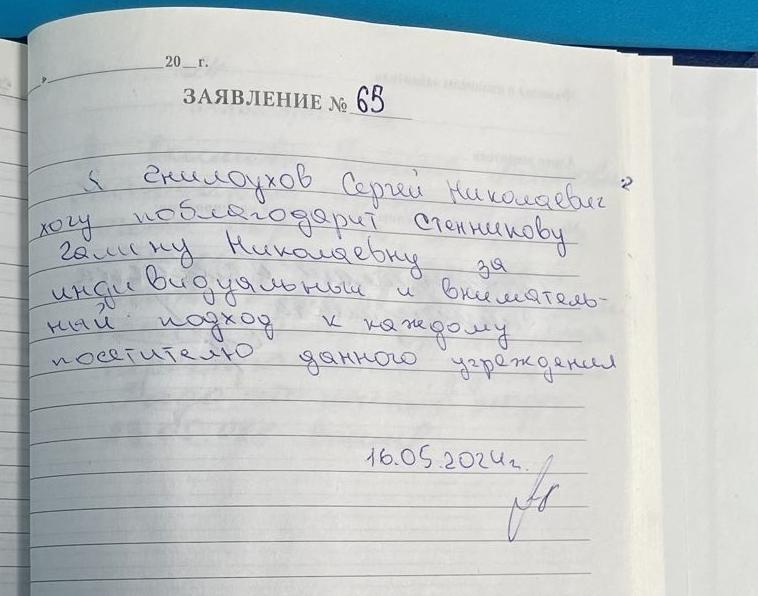 " 20 г.
ЗАЯВЛЕНИЕ № 65
Я Гнилоухов Сергей Николаевич
хочу поблагодарит Стенникову
Галину Николаевну за
индивидуальный и вниматель-
ный подход к каждому
посетителю данного учреждения
16.05.2024г.